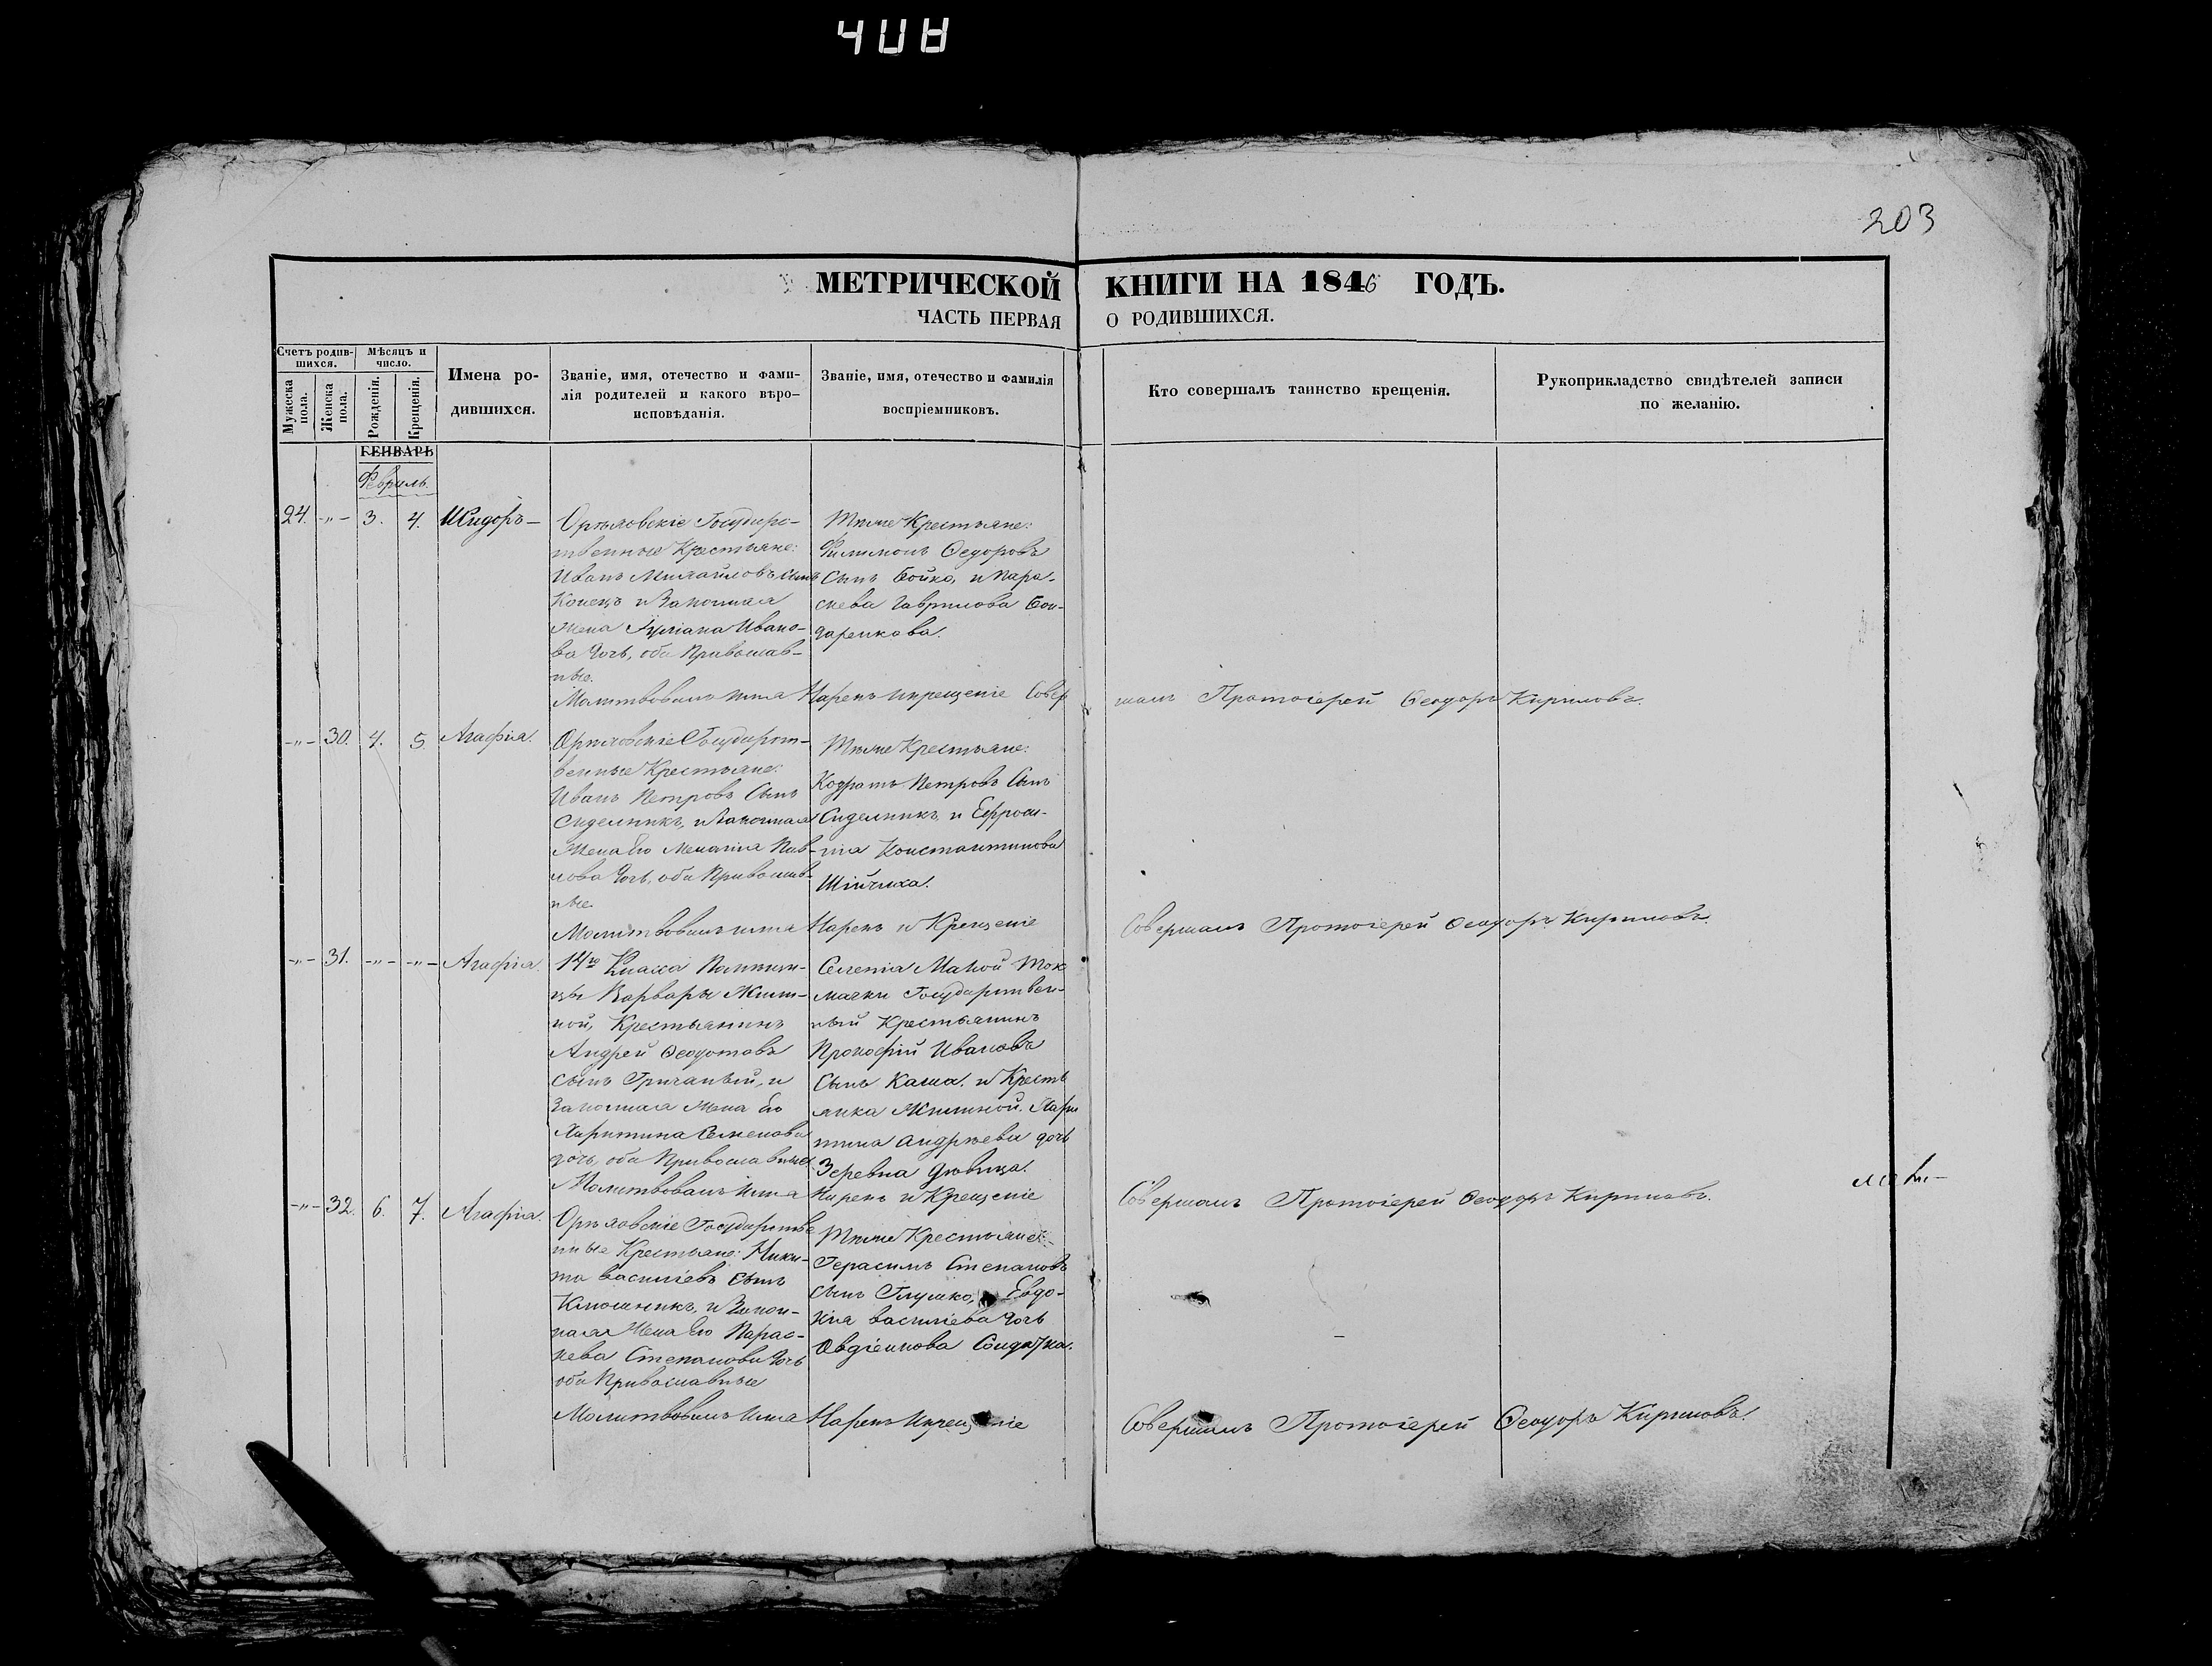 408
203
МЕТРИЧЕСКОЙ КНИГИ НА 1846 ГОДЪ.
ЧАСТЬ ПЕРВАЯ О РОДИВШИХСЯ.
Счетъ родив-
шихся.
Мужеска пола.
Женска пола.
Мѣсяцъ и
число.
Рожденія.
Крещенія.
Имена ро-
дившихся.
Званіе, имя, отечество и фами-
лія родителей и какого вѣро-
исповѣданія.
Званіе, имя, отечество и фамилія
воспріемниковъ.
Кто совершалъ таинство крещенія.
Рукоприкладство свидѣтелей записи
по желанію.
ГЕНВАРЬ
Февраль.
24. -„- 3. 4. Исидоръ-
Орѣховскіе Государс-
твенные Крестьяне:
Иванъ Михайловъ сынъ
Конецъ и Законная
Жена Іуліана Ивано-
ва дочь, оба Православ-
ные.
Тѣже Крестьяне:
Филимонъ Ѳедоровъ
Сынъ Бойко, и Пара-
скева Гаврилова Бон-
даренкова.
Молитвовалъ имя Нарекъ и крещеніе Совер
шалъ Протоіерей Ѳеодоръ Кириловъ.
-„- 30. 4. 5. Агафія.
Орѣховскіе Государст-
венные Крестьяне:
Иванъ Петровъ Сынъ
Сиделникъ, и Законная
Жена Его Меланія Пав-
лова дочь, оба Православ-
ные.
Тѣже Крестьяне:
Кодратъ Петровъ Сынъ
Сиделникъ, и Ефроси-
нія Константинова
Молитвовалъ имя Нарекъ и Крещеніе
Совершалъ Протоіерей Ѳеодоръ Кириловъ.
-„- 31. -„- -„- Агафія.
14го Класса
цы Варвары
ной, Крестьянинъ
Андрей Ѳеодотовъ
сынъ Гричаный, и
Законная Жена Его
Харитина Семенова
дочь, оба Православные
Селенія Малой Ток
мачки Государствен-
ный Крестьянинъ
Прокофій Ивановъ
Сынъ Каша, и Кресть
янка Хари
тина Андрѣева дочь
дѣвица.
Молитвовалъ имя Нарекъ и Крещеніе
Совершалъ Протоіерей Ѳеодоръ Кириловъ.
-„- 32. 6. 7. Агафія.
Орѣховскіе Государстве
нные Крестьяне: Ники-
та Василіевъ Сынъ
Клюшникъ, и Закон-
ная Жена Его Парас-
кева Степанова дочь
оба Православные
Тѣже Крестьяне:
Герасимъ Степановъ
сынъ Глушко, Евдо-
кія Василіева дочь
Овдіенкова
Молитвовалъ имя Нарекъ и крещеніе
Совершалъ Протоіерей Ѳеодоръ Кириловъ.